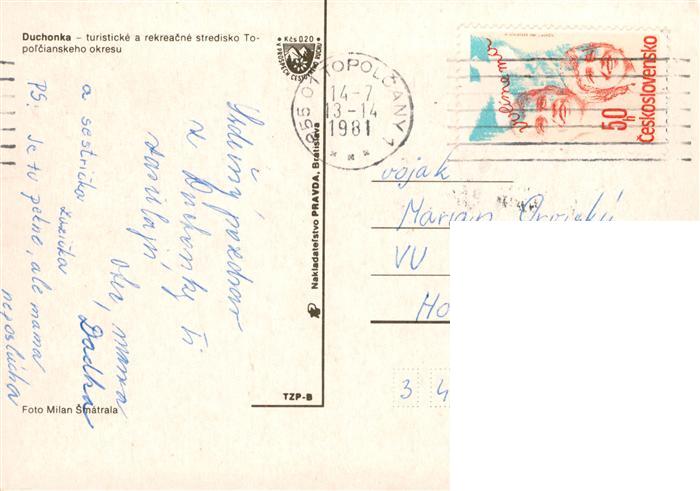 Duchonka – turistické a rekreačné stredisko To-
poľčianskeho okresu
Kčs 0,20
Srdečný pozdrav
z Duchonky ti
posielajú
oco, mama
Dadka
a sestrička
Zuzička
PS: Je tu pekne, ale mama
neposlúcha
Foto Milan Šmátrala
Nakladateľstvo PRAVDA, Bratislava
TZP-B
955 01 TOPOĽČANY 1
14-7
13-14
1981
50 h
Československo
vojak
Marian
VU
Ho
3 4